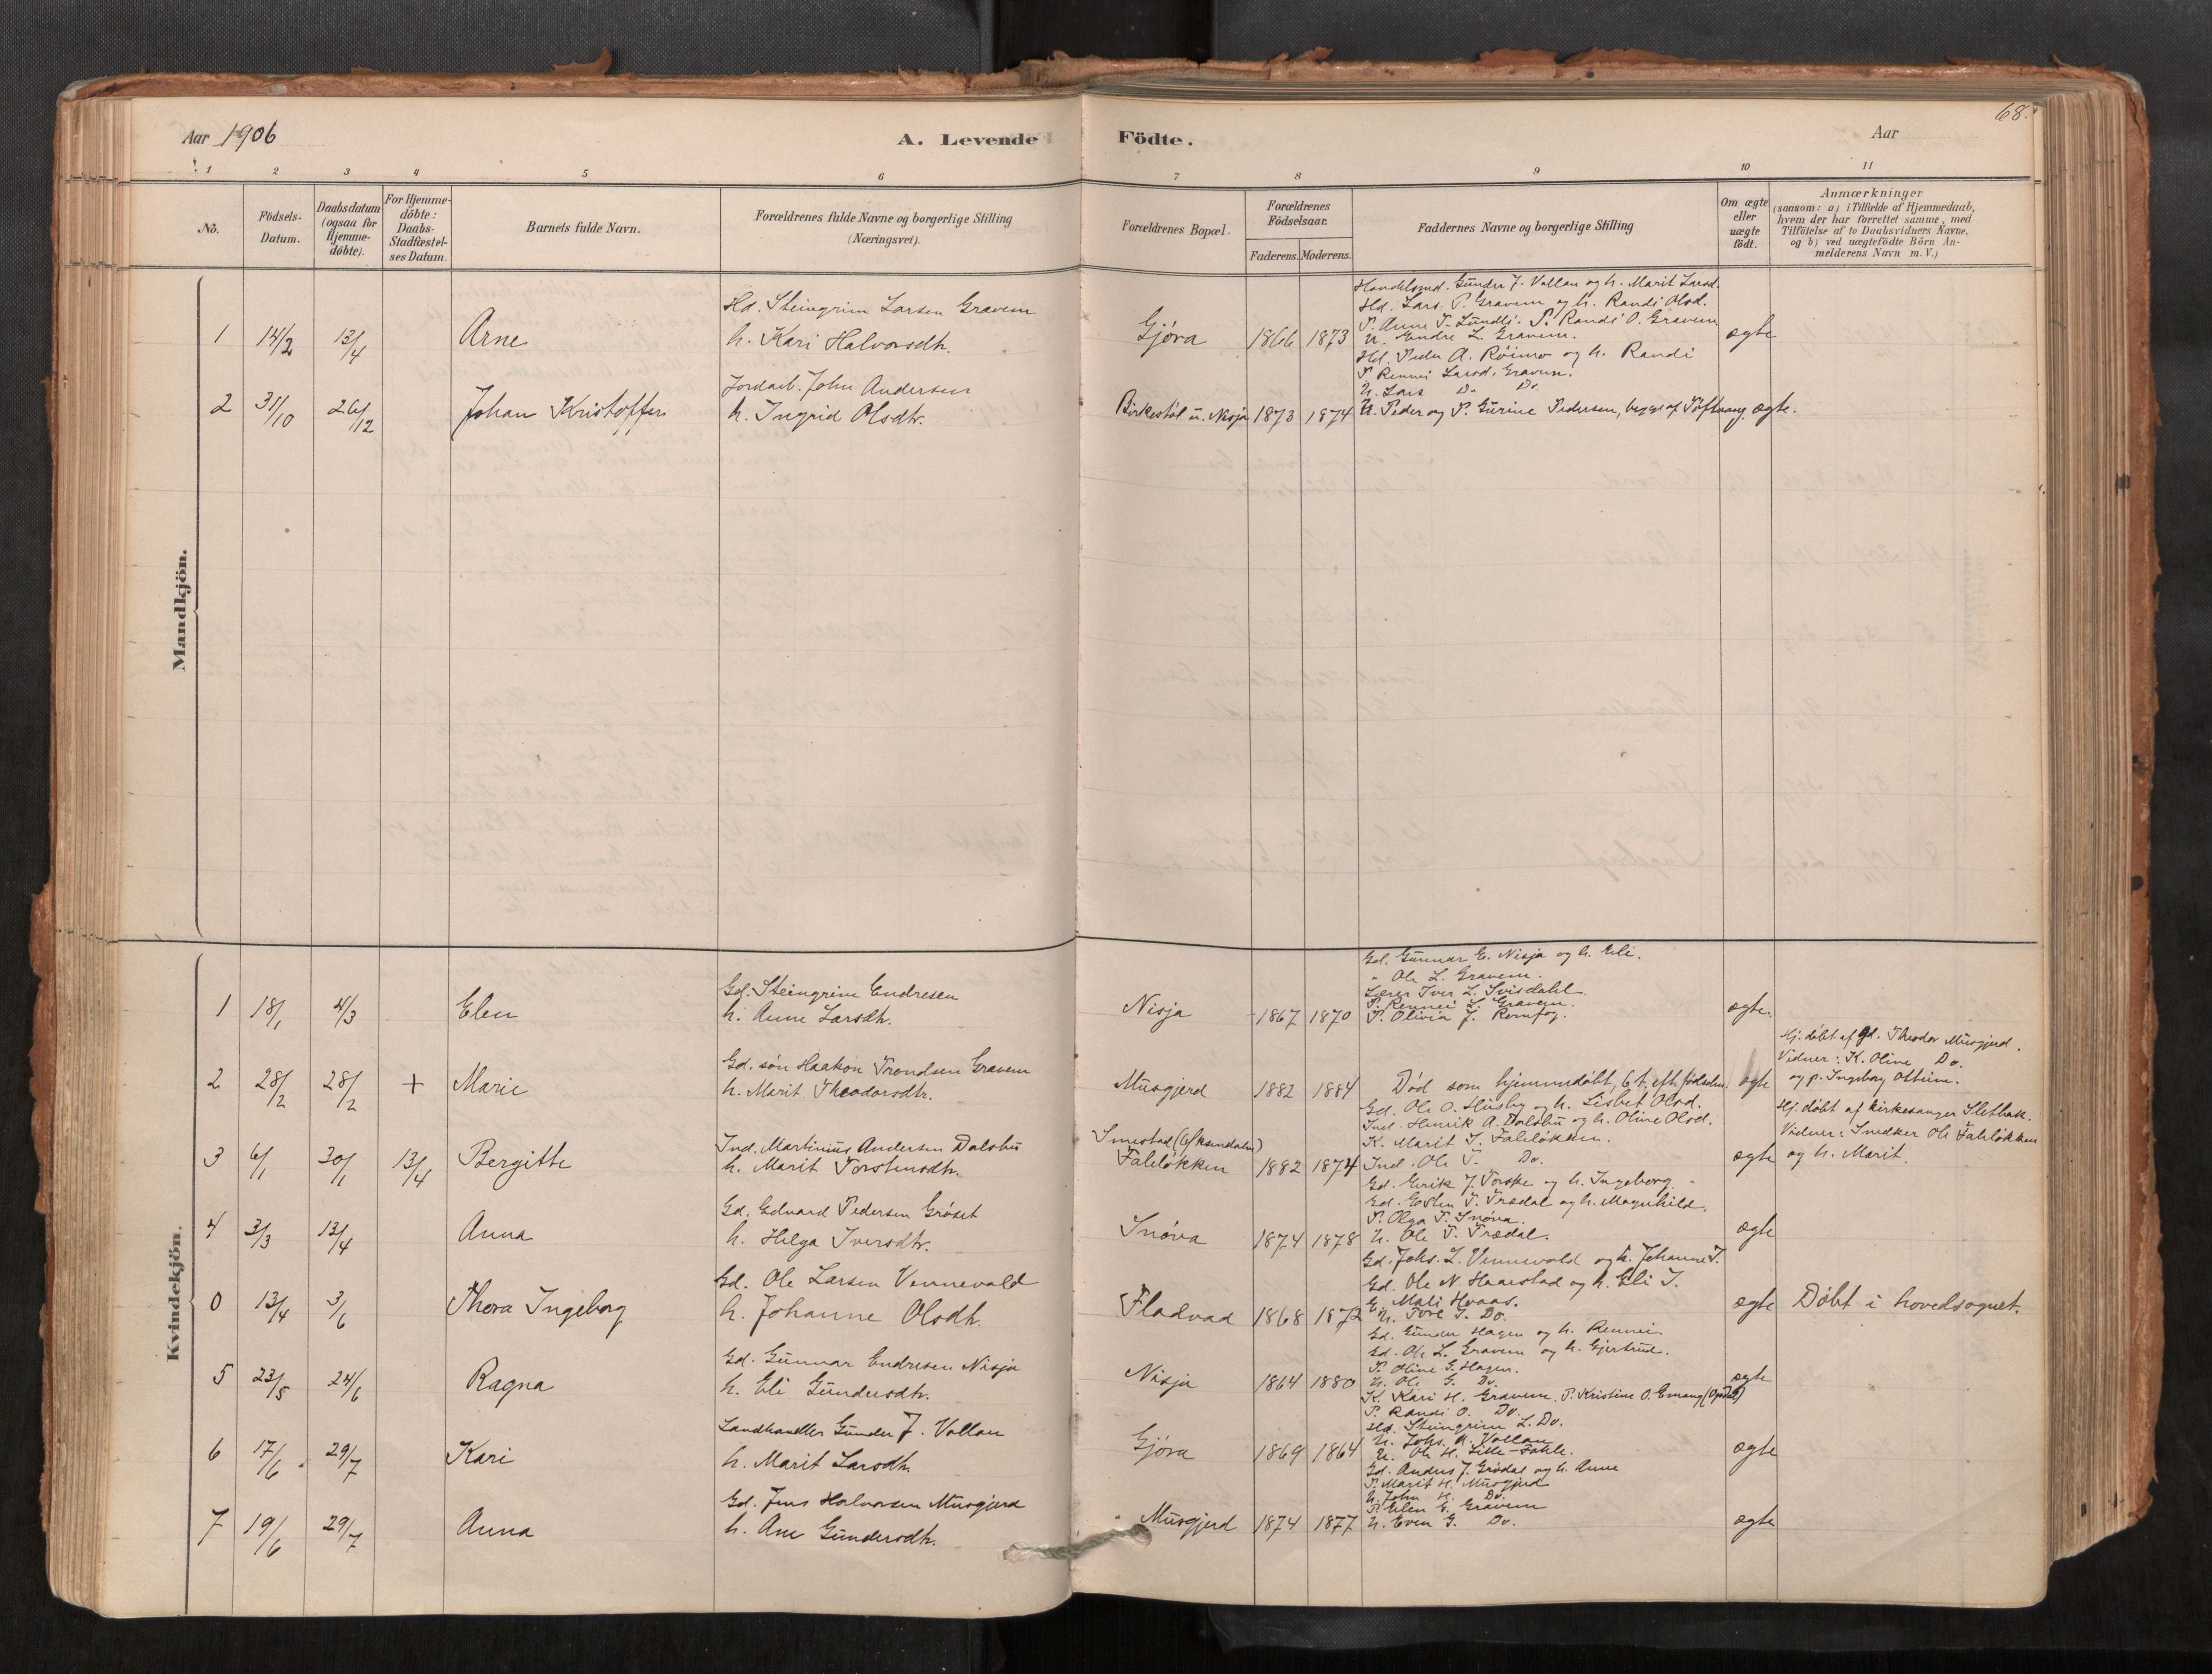 68.
Aar 1906
A. Levende Födte.
Aar
1 2 3 4 5 6 7 8 9 10 11
No.
Födsels-
Datum.
Daabsdatum
(ogsaa for
Hjemme-
döbte).
For Hjemme-
döbte:
Daabs-
Stadfæstel-
ses Datum.
Barnets fulde Navn.
Forældrenes fulde Navne og borgerlige Stilling
(Næringsvei).
Forældrenes Bopæl.
Forældrenes
Födselsaar.
Faderens. Moderens.
Faddernes Navne og borgerlige Stilling
Om ægte
eller
uægte
födt.
Anmærkninger
(saasom: a) i Tilfælde af Hjemmedaab,
hvem der har forrettet samme, med
Tilföielse af to Daabsvidners Navne,
og b) ved uægtefödte Börn An-
melderens Navn m. V.)
Mandkjön.
1 14/2 13/4 Arne
Hd. Steingrim Larsen Gravem
h. Kari Halvorsdtr.
Gjøra 1866 1873
Handelsmd. Gunder J. Vollan og h. Marit Larsd.
Hd. Lars P. Gravem og h. Randi Olsd.
P. Anne T. Lundli. P. Randi O. Gravem
U. Endre L. Gravem.
ægte
2 31/10 26/12 Johan Kristoffer
Jordarb. John Andersen
h. Ingrid Olsdtr.
Birkestøl u. Nisja 1873 1874
Hd. Peder A. Röimo og h. Randi
P. Rennei Larsd. Gravem.
U. Lars Do. Do.
U. Peder og P. Gurine Pedersen, begge af Toftvang.
ægte.
Kvindekjön.
1 18/1 4/3 Elen
Gd. Steingrim Endresen
h. Anne Larsdtr.
Nisja 1867 1870
Gd. Gunnar E. Nisja og h. Eli.
" Ole L. Gravem.
Lærer Iver L. Svisdahl.
P. Rennei L. Gravem.
P. Olivia J. Romfog.
ægte.
2 28/2 28/2 + Marie
Gd. søn Haakon Trondsen Gravem
h. Marit Theodorsdtr.
Musgjerd 1882 1884
Død som hjemmedøbt, 6 t. efter fødselen.
ægte
Hj. døbt af gd. Theodor Musgjerd.
Vidner: K. Oline Do.
og p. Ingeborg Ottem.
3 6/1 30/1 13/4 Bergitte
Ind. Martinius Andersen Dalsbu
h. Marit Torstensdtr.
Smestad (Øksendalen)
Faleløkken 1882 1874
Gd. Ole O. Husby og h. Lisbet Olsd.
Ind. Henrik A. Dalsbu og h. Oline Olsd.
K. Marit T. Faleløkken.
Ind. Ole T. Do.
ægte
Hj. døbt af kirkesanger Sletbak.
Vidner: Snedker Ole Faleløkken
og h. Marit.
4 3/3 13/4 Anna
Gd. Edvard Pedersen Grøset
h. Helga Iversdtr.
Snøva 1874 1878
Gd. Eirik J. Torske og h. Ingeborg.
Gd. Esten T. Trædal og h. Magnhild.
P. Olga T. Snøva.
U. Ole T. Trædal.
ægte
0 13/4 3/6 Thora Ingeborg
Gd. Ole Larsen Vennevold
h. Johanne Olsdtr.
Fladvad 1868 1872
Gd. Johs. L. Vennevold og h. Johanne T.
Gd. Ole N. Haarstad og h. Eli I.
G. Mali Hoaas.
U. Tore I. Do.
ægte
Døbt i hovedsognet.
5 23/5 24/6 Ragna
Gd. Gunnar Endresen Nisja
h. Eli Gundersdtr.
Nisja 1864 1880
Gd. Gunder Hagen og h. Rennei.
Gd. Ole L. Gravem og h. Gjertrud.
P. Oline G. Hagen.
U. Ole G. Do.
ægte
6 17/6 29/7 Kari
Landhandler Gunder J. Vollan
h. Marit Larsdtr.
Gjøra 1869 1864
K. Kari H. Gravem. P. Kristine O. Emang (Opdal)
P. Randi O. Do.
Hd. Steingrim L. Do.
U. Johs. A. Vollan
U. Ole H. Lille-Fahle.
ægte
7 19/6 29/7 Anna
Gd. Jens Halvorsen Musgjerd
h. Ane Gundersdtr.
Musgjerd 1874 1877
Gd. Anders J. Grødal og h. Anne
P. Marit H. Musgjerd
U. John H. Do.
P. Elen G. Gravem
U. Even G. Do.
ægte